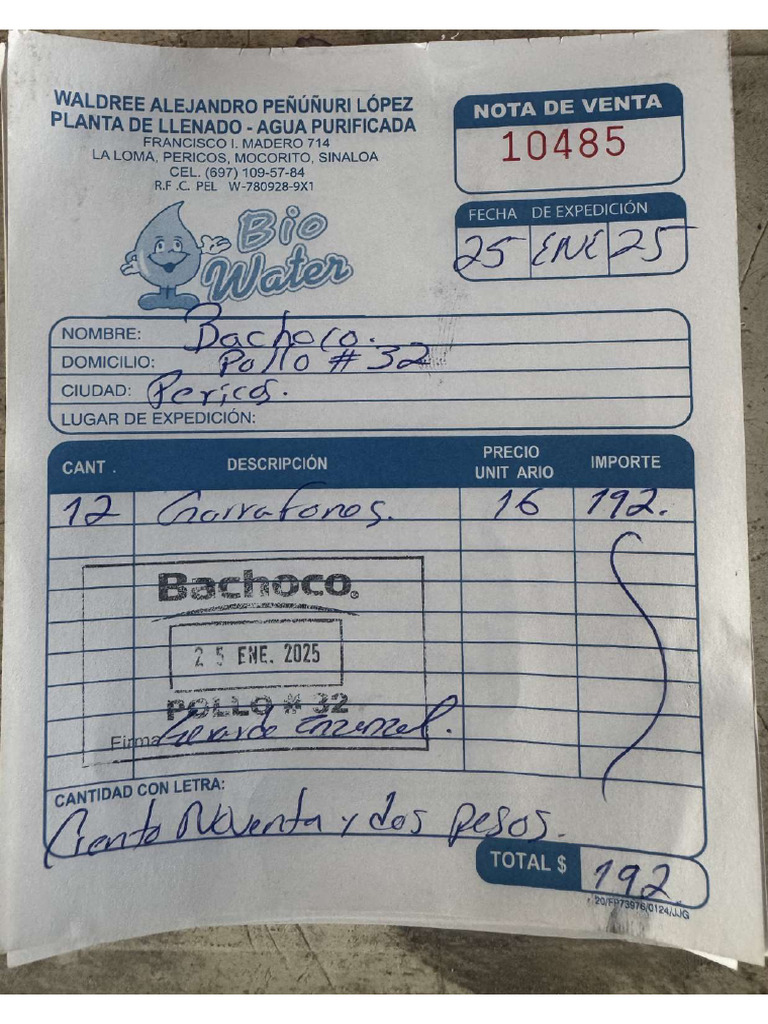 WALDREE ALEJANDRO PEÑÚÑURI LÓPEZ
PLANTA DE LLENADO - AGUA PURIFICADA
FRANCISCO I. MADERO 714
LA LOMA, PERICOS, MOCORITO, SINALOA
CEL. (697) 109-57-84
R.F .C. PEL W-780928-9X1
NOTA DE VENTA
10485
FECHA DE EXPEDICIÓN
25 ENE 25
Bio
Water
NOMBRE: Bachoco.
DOMICILIO: Pollo # 32
CIUDAD: Pericos.
LUGAR DE EXPEDICIÓN:
CANT . DESCRIPCIÓN PRECIO UNIT ARIO IMPORTE
12 Garrafones. 16 192.
Bachoco®
25 ENE. 2025
POLLO # 32
Firma Gerardo
CANTIDAD CON LETRA:
Ciento Noventa y dos pesos.
TOTAL $ 192
20/FP73976/0124/JJG